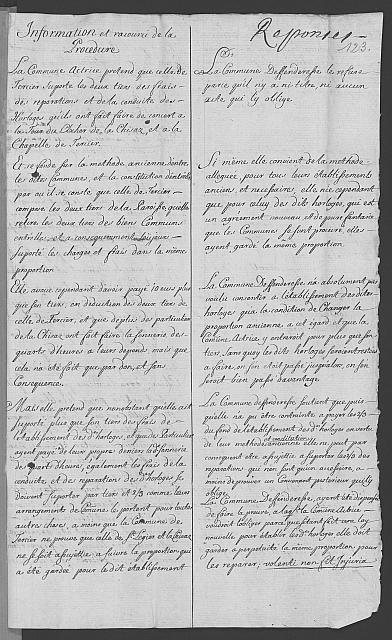 Information et racourci de la
Procedure
La Commune Actrice pretend que celle de
Torcier Suporte les deux tiers des frais
des reparations et de la conduite des
Horloges quils ont fait faire de concert a
la Tour du Clocher de la Chisaz et a la
Chapelle de Torcier.
Et se fonde Sur la methode ancienne d'entre
les dites Communes, et la constitution d'icelles
par ou il se conste, que celle de Torcier
compose les deux tiers de la Paroisse, quelle
retire les deux tiers des biens Communs
entr'elles, et a consequemment toujours
Suporté les charges et frais dans la même
proportion
Elle avoue cependant davoir payé 10 eus plus
que son tiers, en deduction des deux tiers de
celle de Torcier, et que de plus des particuliers
de la Chisaz ont fait faire la sonnerie des
quarts d'heures a leurs depends, mais que
cela na été fait que par don, et sans
Consequence.
Mais elle pretend que nonobstant quelle ait
Suporté plus que Son tiers des frais de
l'etablissement des dt horloges, et que des Particuliers
ayent payé de leurs propres deniers la Sonnerie
des quart d'heure, egalement les frais de la
conduite, et des reparations des dt horloges se
doivent Suporter par tiers et 2/3 comme leurs
arrangements de Commune le portent pour toutes
autres choses, a moins que la Commune de
Torcier ne prouve que celle de St Legier et la Chisaz
ne se soit assujettie a suivre la proportion qui
a été gardée pour le dit etablissement
Reponses
123.
La Commune Deffenderesse le refuse
parce quil ny a ni titre, ni aucun
acte qui ly oblige.
Si même elle convient de la methode
alleguée pour tous leurs etablissements
anciens, et necessaires, elle nie cependant
que pour celuy des dits horloges, qui est
un agrement nouveau et de pure fantaisie
que les Communes se sont procuré, elles
ayent gardé la même proportion.
La Commune Deffenderesse na absolument pas
voulu consentir a l'etablissement des dites
horloges qua la condition de Changer la
proportion ancienne, a cet egard et que la
Commune Actrice, y entreroit pour plus que son
tiers, Sans quoy les dits horloges seroient restées
a faire, on s'en étoit passé jusqualors, on s'en
seroit bien passé davantage.
La Commune Deffenderesse Soutient que puis-
quelle na pu être contrainte a payer les 2/3
du fond de l'etablissement des dt horloges en vertu
de leur methode ancienne et institutions, elle ne peut par
consequent être assujettie a suporter les 2/3 des
reparations qui n'en sont qun accessoire, a
moins de prouver un Consentement posterieur quil y
oblige
La Commune Deffenderesse, ayant été disposée
de faire la preuve, a laqle la Comune Actrice
voudroit l'obliger, parce que s'etant fait une loy
nouvelle pour etablir les dt horloges elle doit
garder a perpetuité la même proportion, pour
les reparer; volenti non fit Injuria